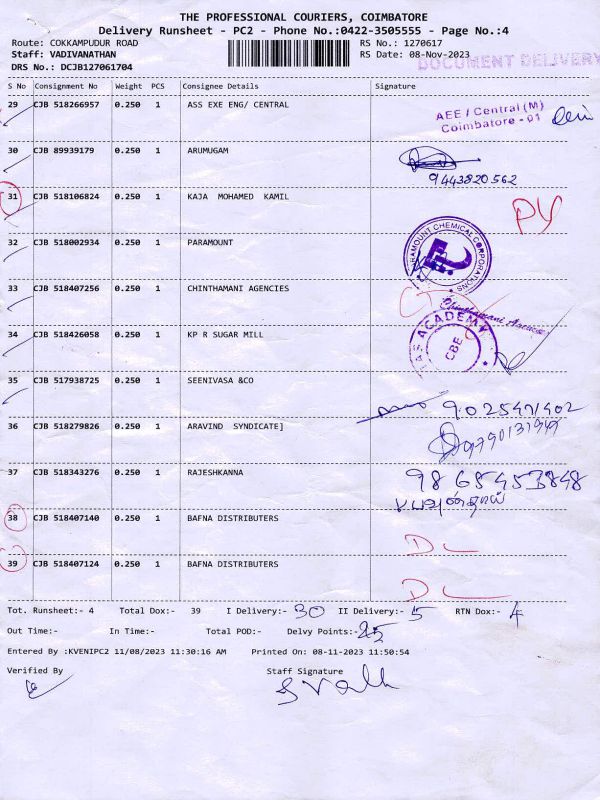 THE PROFESSIONAL COURIERS, COIMBATORE
Delivery Runsheet - PC2 - Phone No.:0422-3505555 - Page No.:4
Route: COKKAMPUDUR ROAD RS No.: 1270617
Staff: VADIVANATHAN RS Date: 08-Nov-2023
DOCUMENT DELIVERY
DRS No.: DCJB127061704
S No Consignment No Weight PCS Consignee Details Signature
29 CJB 518266957 0.250 1 ASS EXE ENG/ CENTRAL
AEE / Central (M)
Coimbatore - 01
30 CJB 89939179 0.250 1 ARUMUGAM
9443820562
31 CJB 518106824 0.250 1 KAJA MOHAMED KAMIL PY
32 CJB 518002934 0.250 1 PARAMOUNT
PARAMOUNT CHEMICAL CORPORATIONS
33 CJB 518407256 0.250 1 CHINTHAMANI AGENCIES
Chinthamani Agencies
34 CJB 518426058 0.250 1 KP R SUGAR MILL
ACADEMY
CBE
35 CJB 517938725 0.250 1 SEENIVASA &CO
9025471402
36 CJB 518279826 0.250 1 ARAVIND SYNDICATE]
37 CJB 518343276 0.250 1 RAJESHKANNA 9868453848
38 CJB 518407140 0.250 1 BAFNA DISTRIBUTERS
DL
39 CJB 518407124 0.250 1 BAFNA DISTRIBUTERS
DL
Tot. Runsheet:- 4 Total Dox:- 39 I Delivery:- 30 II Delivery:- 5 RTN Dox:- 4
Out Time:- In Time:- Total POD:- Delvy Points:- 25
Entered By :KVENIPC2 11/08/2023 11:30:16 AM Printed On: 08-11-2023 11:50:54
Verified By Staff Signature